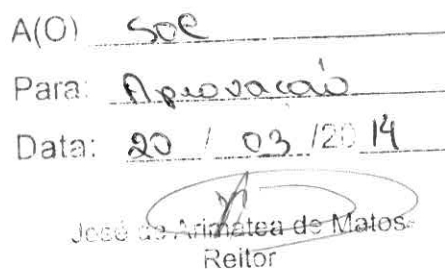 A(O) SOC
Para: Aprovação
Data: 20 / 03 /20 14
José de Arimatea de Matos
Reitor